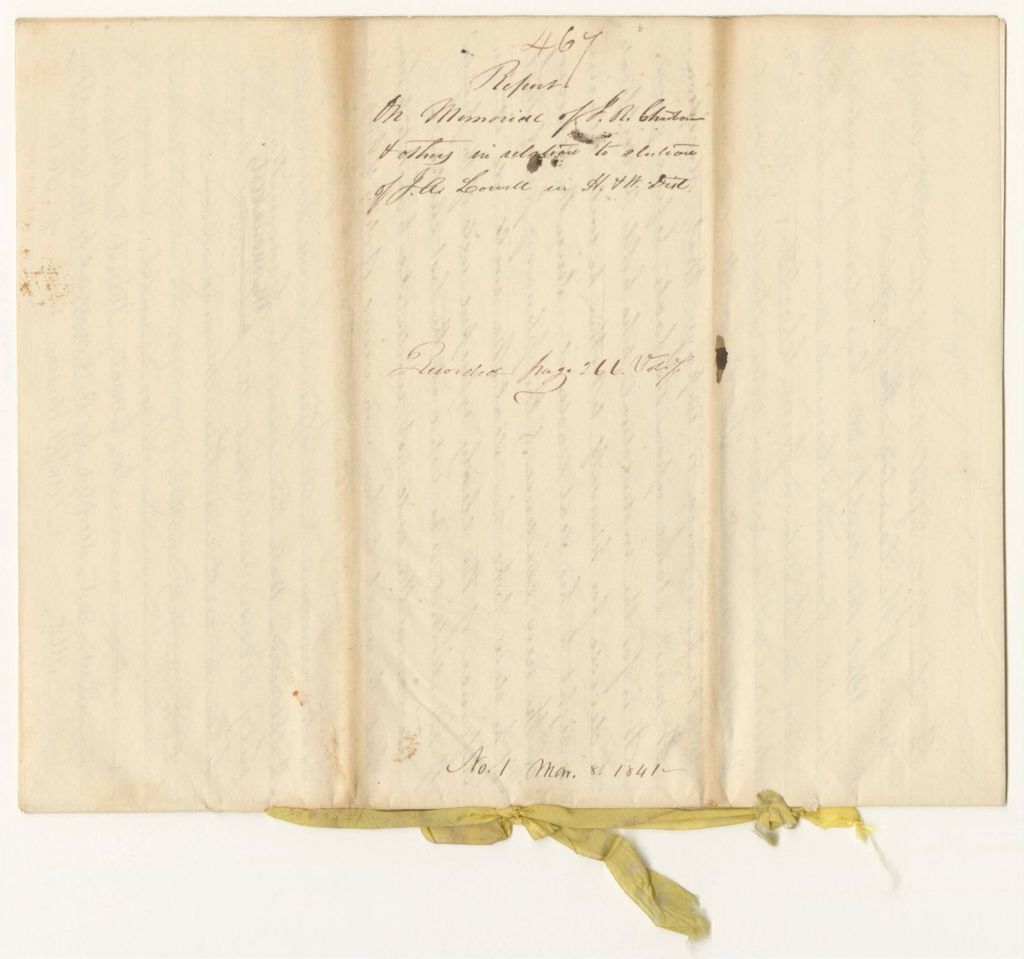 467
Report
On Memorial of J. R. Chadbourne
& others in relation to election
of J. A. Lowell in H. & W. Dist.
Recorded page 266. Vol. 7
No. 1 Mar. 8. 1841